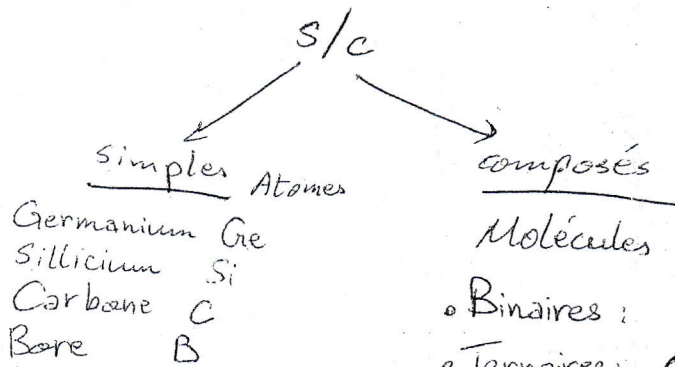 S/C
simples Atomes
Germanium Ge
Sillicium Si
Carbone C
Bore B
composés
Molécules
• Binaires :
• Ternaires :